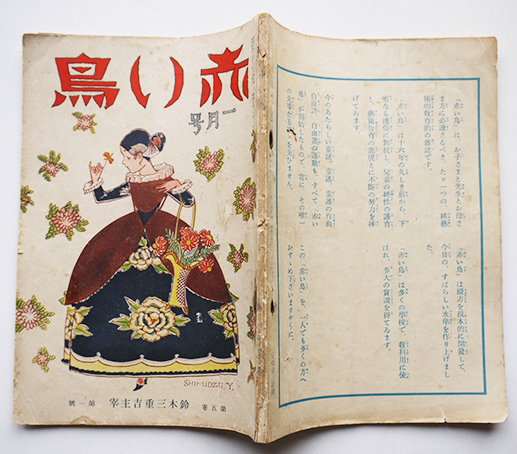 赤い鳥
一月号
第五卷 鈴木三重吉主宰 第一號
「赤い鳥」は、お子さまと先生とお母さ
ま方に必讀さるべき、たゞ一つの、純藝
術的教育的の雜誌です。
「赤い鳥」は十六年の久しき前から、下
劣なる通俗に對抗し、兒童の純性の護育
と、藝術教育の進展とに不斷の努力を捧
げてゐます。
今のあたらしい童話、童謠、童謠の作曲
自由詩、自由畫の運動も、すべて「赤い
鳥」が創始したもので、常に、その唯一
「赤い鳥」は綴方を根本的に開發して、
今日の、すばらしい水準を作り上げまし
た。
「赤い鳥」は多くの學校で、教科用に使
はれ、多大の貢獻を得てゐます。
この「赤い鳥」を、一人でも多くの方へ
おすゝめ下さいますやうに。